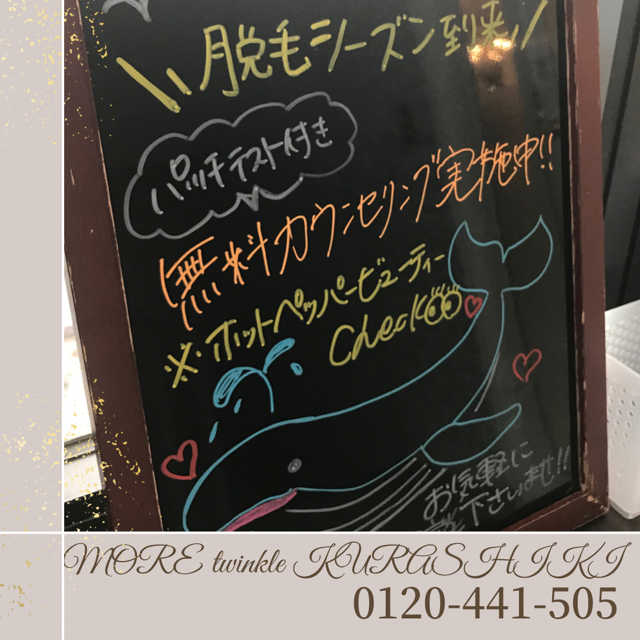 \\脱毛シーズン到来//
パッチテスト付き
無料カウンセリング実施中!!
※ホットペッパービューティー
Check
お気軽に
下さいませ!!
MORE twinkle KURASHIKI
0120-441-505